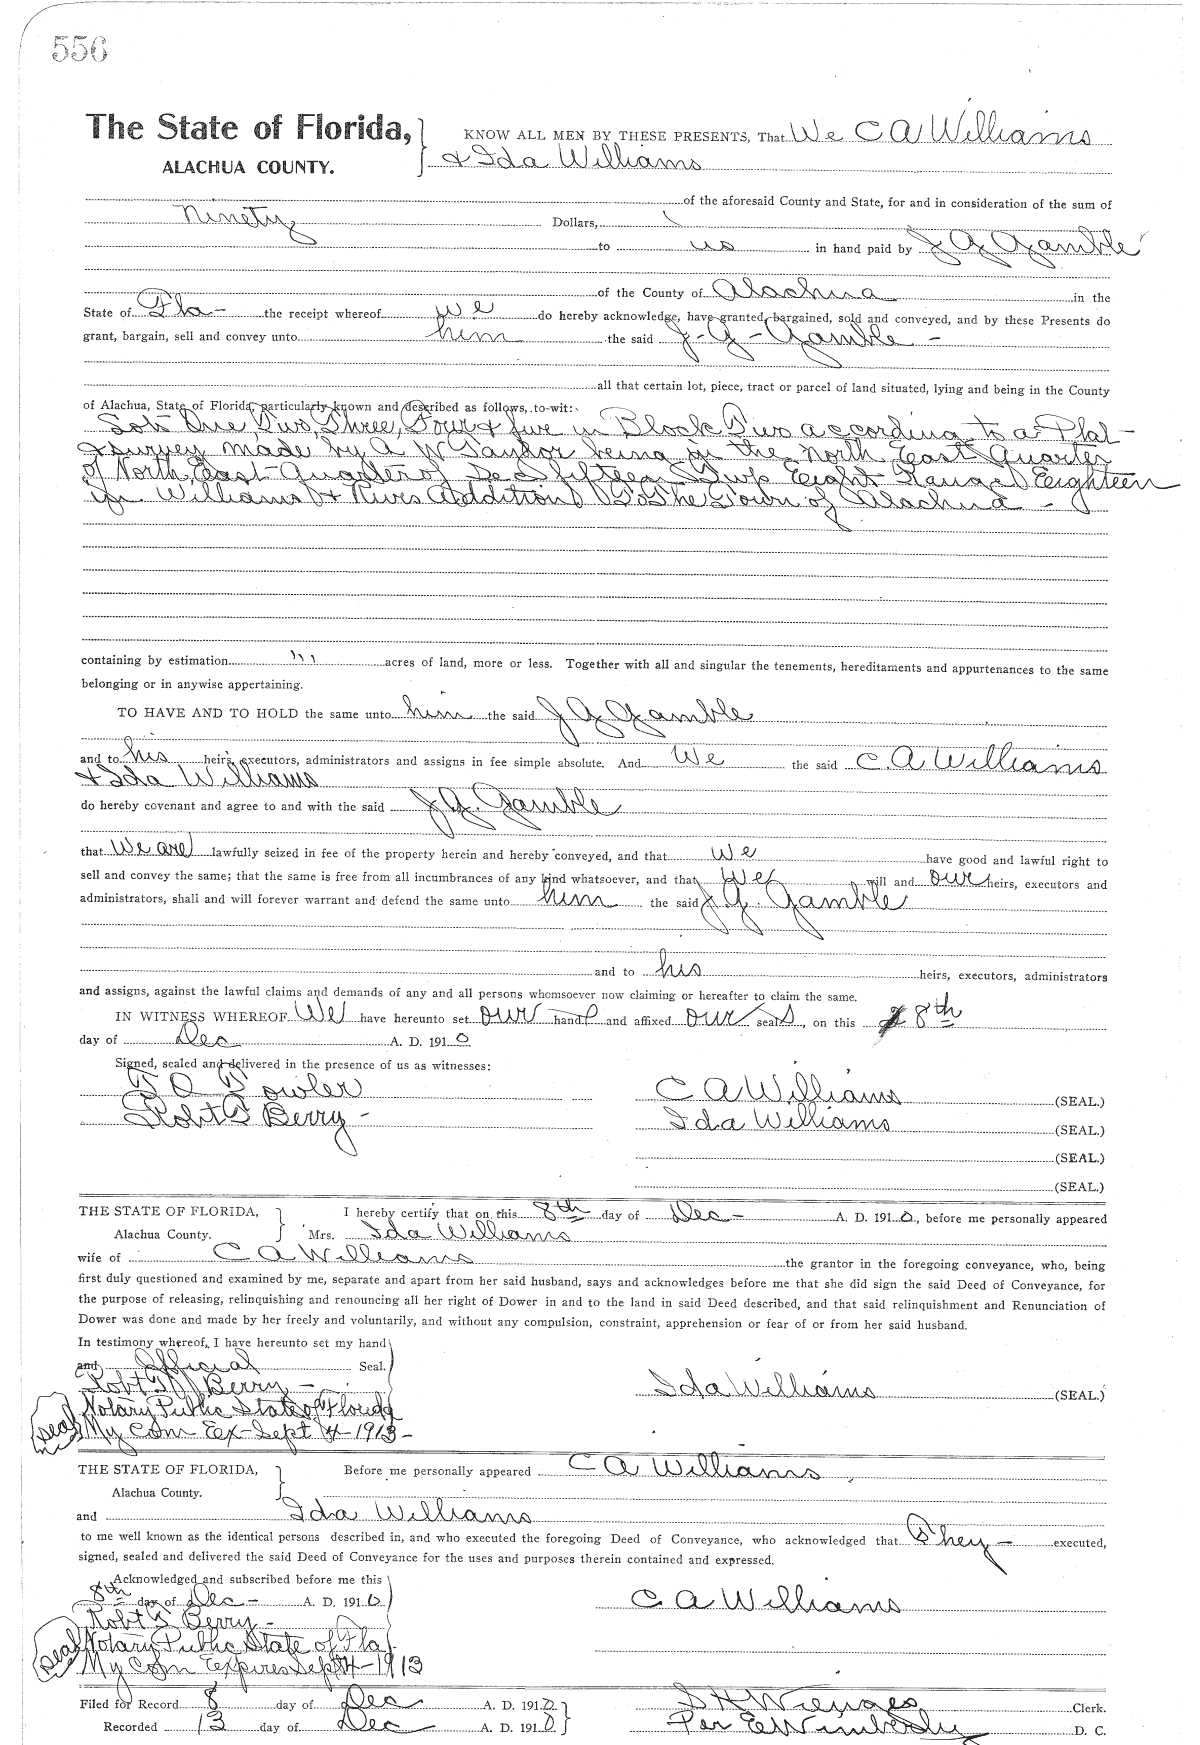 556
The State of Florida, KNOW ALL MEN BY THESE PRESENTS, That We C A Williams
ALACHUA COUNTY. & Ida Williams
of the aforesaid County and State, for and in consideration of the sum of
Ninety Dollars,
to us in hand paid by J G Gamble
of the County of Alachua in the
State of Fla - the receipt whereof we do hereby acknowledge, have granted, bargained, sold and conveyed, and by these Presents do
grant, bargain, sell and convey unto him the said J - G - Gamble -
all that certain lot, piece, tract or parcel of land situated, lying and being in the County
of Alachua, State of Florida, particularly known and described as follows, to-wit:
Lots One, Two, Three, Four & five in Block Two according to a Plat -
& survey made by A W Taylor being in the North East Quarter
of North East Quarter of Sec fifteen Twp Eight Range Eighteen
in Williams & Rives Addition To The Town of Alachua -
containing by estimation acres of land, more or less. Together with all and singular the tenements, hereditaments and appurtenances to the same
belonging or in anywise appertaining.
TO HAVE AND TO HOLD the same unto him the said J G Gamble
and to his heirs, executors, administrators and assigns in fee simple absolute. And We the said C. A Williams
& Ida Williams
do hereby covenant and agree to and with the said J G. Gamble
that We are lawfully seized in fee of the property herein and hereby conveyed, and that we have good and lawful right to
sell and convey the same; that the same is free from all incumbrances of any kind whatsoever, and that we will and our heirs, executors and
administrators, shall and will forever warrant and defend the same unto him the said J G. Gamble
and to his heirs, executors, administrators
and assigns, against the lawful claims and demands of any and all persons whomsoever now claiming or hereafter to claim the same.
IN WITNESS WHEREOF We have hereunto set our hand and affixed our seals, on this 8th
day of Dec A. D. 1910
Signed, sealed and delivered in the presence of us as witnesses:
C A Williams (SEAL.)
Robt Berry - Ida Williams (SEAL.)
(SEAL.)
(SEAL.)
THE STATE OF FLORIDA, I hereby certify that on this 8th day of Dec - A. D. 1910, before me personally appeared
Alachua County. Mrs. Ida Williams
wife of C A Williams the grantor in the foregoing conveyance, who, being
first duly questioned and examined by me, separate and apart from her said husband, says and acknowledges before me that she did sign the said Deed of Conveyance, for
the purpose of releasing, relinquishing and renouncing all her right of Dower in and to the land in said Deed described, and that said relinquishment and Renunciation of
Dower was done and made by her freely and voluntarily, and without any compulsion, constraint, apprehension or fear of or from her said husband.
In testimony whereof, I have hereunto set my hand
and Official Seal.
Robt Berry - Ida Williams (SEAL.)
Notary Public State of Florida
Seal My Com Ex - Sept 14 - 1913 -
THE STATE OF FLORIDA, Before me personally appeared C A Williams
Alachua County.
and Ida Williams
to me well known as the identical persons described in, and who executed the foregoing Deed of Conveyance, who acknowledged that They - executed,
signed, sealed and delivered the said Deed of Conveyance for the uses and purposes therein contained and expressed.
Acknowledged and subscribed before me this
8th day of Dec - A. D. 1910 C A Williams
Robt Berry -
Notary Public State of Fla
Seal My Com Expires Sept 14 - 1913
Filed for Record 8 day of Dec A. D. 1910 S H Wienges Clerk.
Recorded 13 day of Dec A. D. 1910 Per E Wimberly D. C.